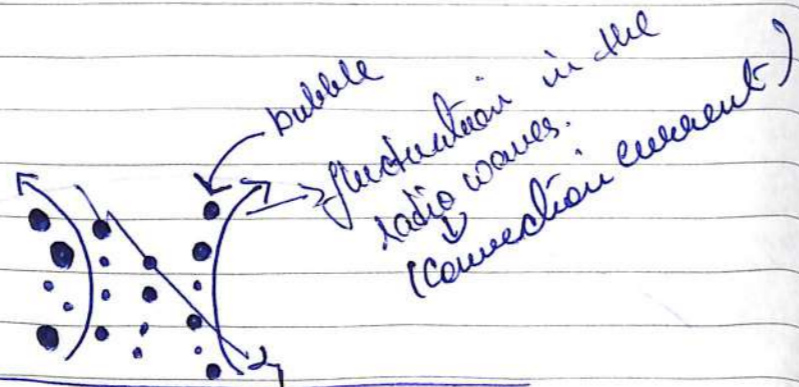 bubble
fluctuation in the
radio waves.
(convection current)